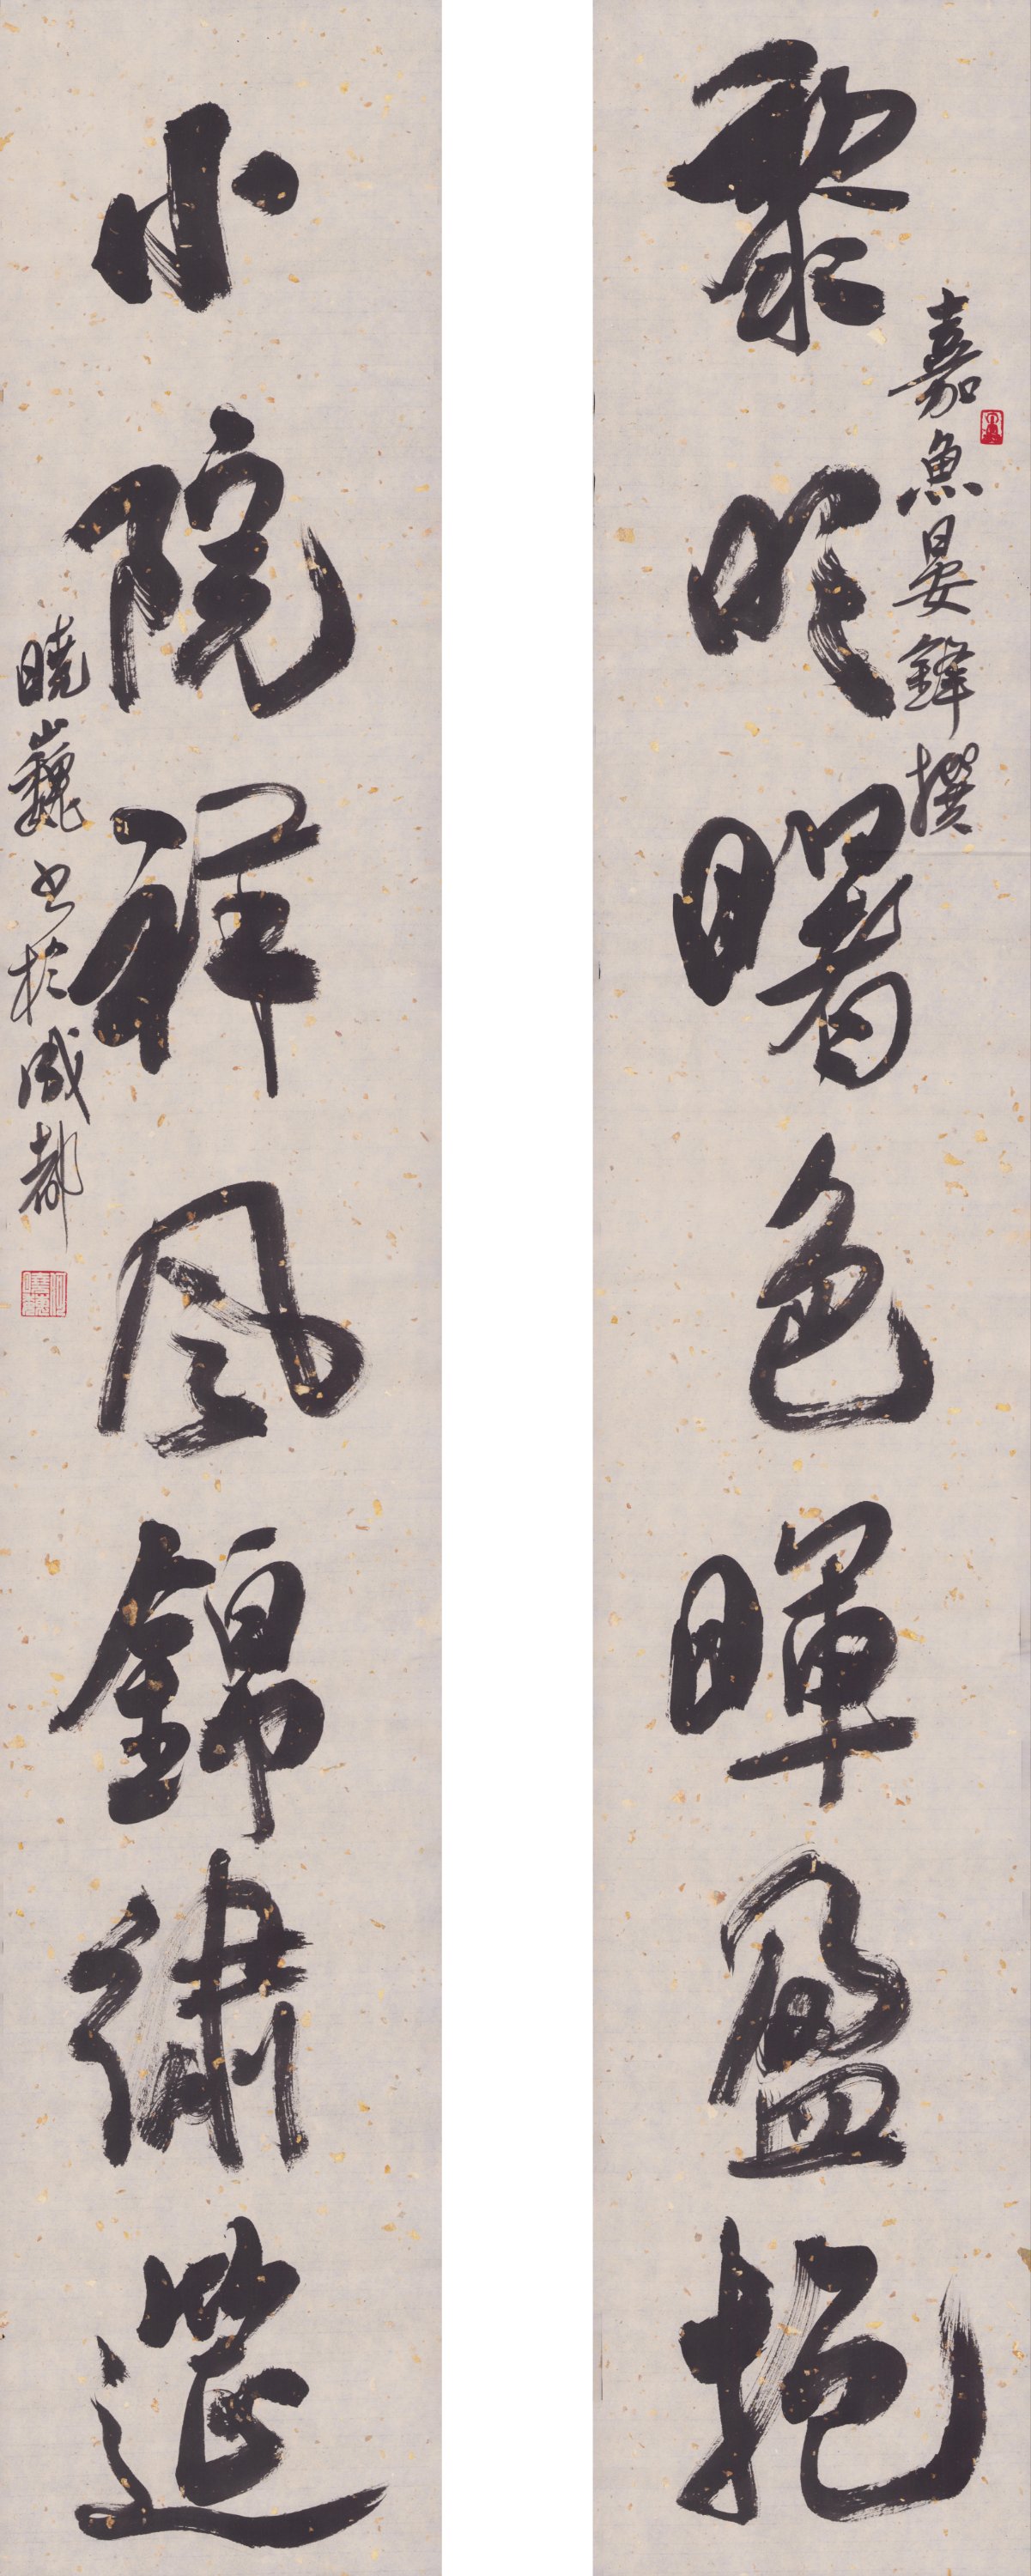 黎明曙色暉盈抱
嘉魚晏鋒撰
小院祥風錦繡筵
曉巍书於成都